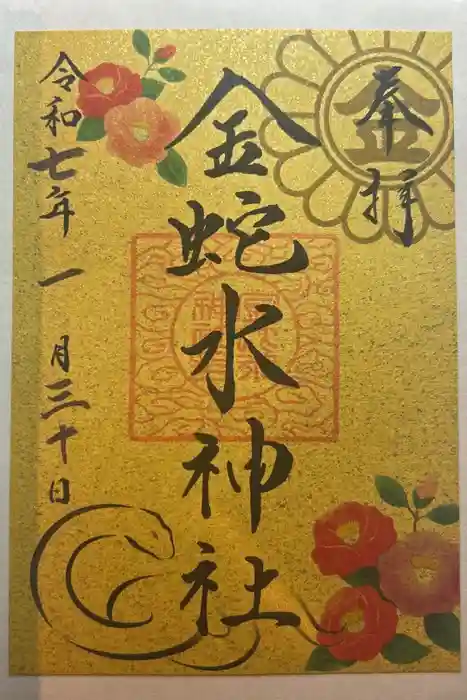 奉拝
金
金蛇水神社
令和七年 一月三十日